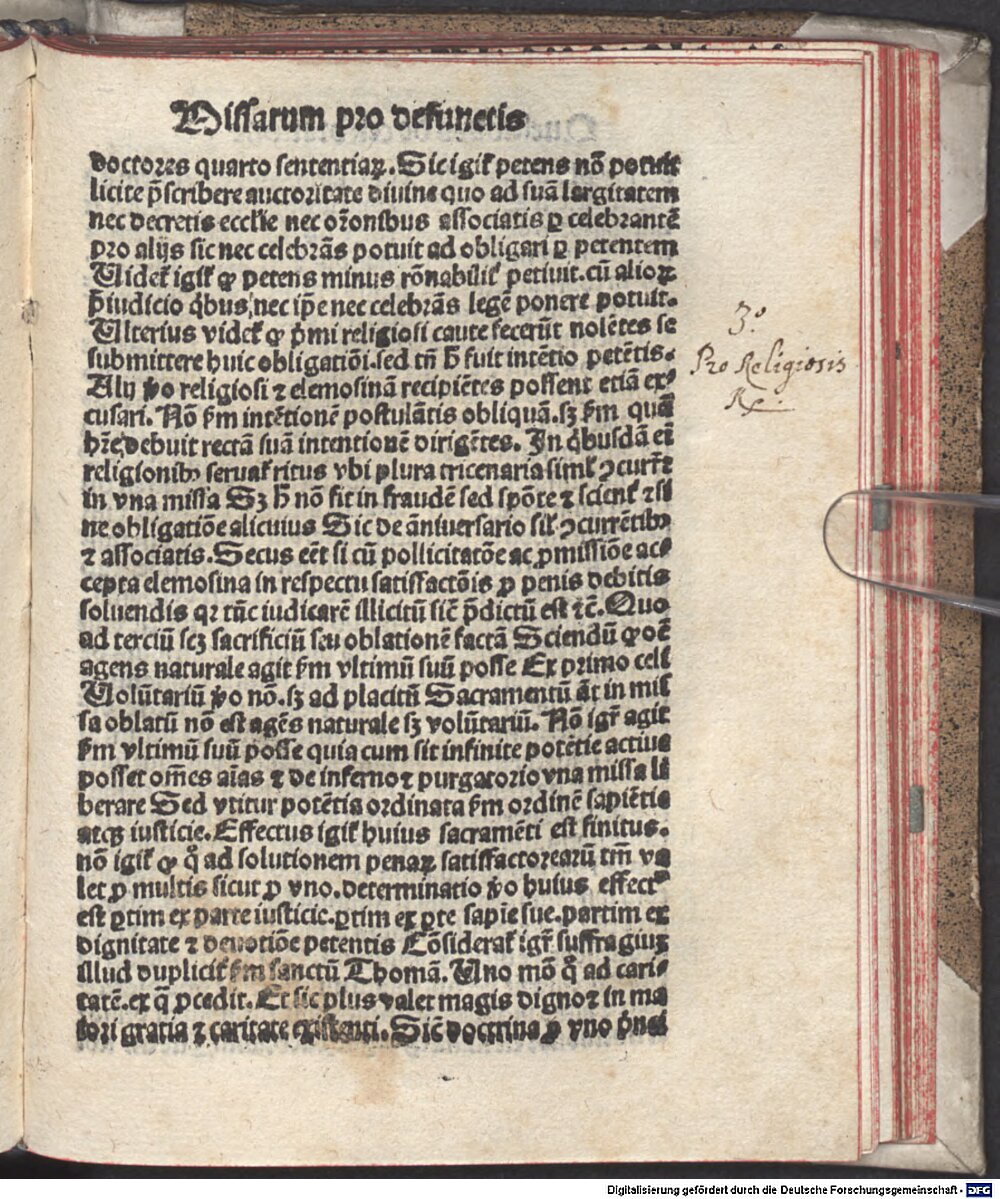 Missarum pro defunctis
doctores quarto sententiaꝝ. Sic igiť petens nõ potuit
licite p̃scribere auctoritate diuine quo ad suã largitatem
nec decretis eccĺie nec oȓonibus associatis ꝑ celebrantẽ
pro alijs sic nec celebrãs potuit ad obligari ꝑ petentem
Videť igiť ꝙ petens minus rõnabiliť petiuit. cũ alioꝝ
p̃iudicio q̇bus, nec ip̃e nec celebrãs legẽ ponere potuit.
Ulterius videť ꝙ p̃mi religiosi caute fecerũt nolẽtes se
submittere huic obligatiõi. sed tñ h̄ fuit intẽtio petẽtis.
Alij v̊o religiosi ⁊ elemosinã recipiẽtes possent etiã ex⸗
cusari. Nõ ẜm intẽtionẽ postulãtis obliquã. sꝫ ẜm quã
hr̃e debuit rectã suã intentionẽ dirigẽtes. In q̇busdã eĩ
religionibꝰ seruať ritus vbi plura tricenaria simĺ ↄcurrũt
in vna missa Sꝫ h̄ nõ fit in fraudẽ sed spõte ⁊ scienť ⁊ si
ne obligatiõe alicuius Sic de ãniuersario siĺ ↄcurrẽtibꝰ
⁊ associatis. Secus eẽt si cũ pollicitatõe ac ꝓmissiõe ac⸗
cepta elemosina in respectu satisfactõis ꝓ penis debitis
soluendis qꝛ tũc iudicarẽ illicitũ sič p̃dictũ est ⁊č. Quo
ad terciũ scꝫ sacrificiũ seu oblationẽ factã Sciendũ ꝙ oẽ
agens naturale agit ẜm vltimũ suũ posse Ex primo celi
Volũtariũ v̊o nõ. sꝫ ad placitũ Sacramentũ aũt in mis
sa oblatũ nõ est agẽs naturale sꝫ volũtariũ. Nõ igr̃ agit
ẜm vltimũ suũ posse quia cum sit infinite potẽtie actiue
posset om̃es aĩas ⁊ de inferno ⁊ purgatorio vna missa li
berare Sed vtitur potẽtia ordinata ẜm ordinẽ sapiẽtie
atqꝫ iusticie. Effectus igiť huius sacramẽti est finitus.
nõ igiť ꝙ q̊ ad solutionem penaꝝ satisfactorearũ tm̃ va
let ꝓ multis sicut ꝓ vno. determinatio v̊o huius effectꝰ
est ꝑtim ex parte iusticie. ꝑtim ex ꝑte sapie sue. partim ex
dignitate ⁊ deuotiõe petentis Cõsiderať igr̃ suffragiuꝫ
illud dupliciť ẜm sanctũ Thomã. Uno mõ q̊ ad cari⸗
tatẽ. ex q̃ ꝓcedit. Et sic plus valet magis digno ⁊ in ma
iori gratia ⁊ caritate existenti. Sič doctrina ꝓ vno p̃nci
3.º
Pro Religiosis